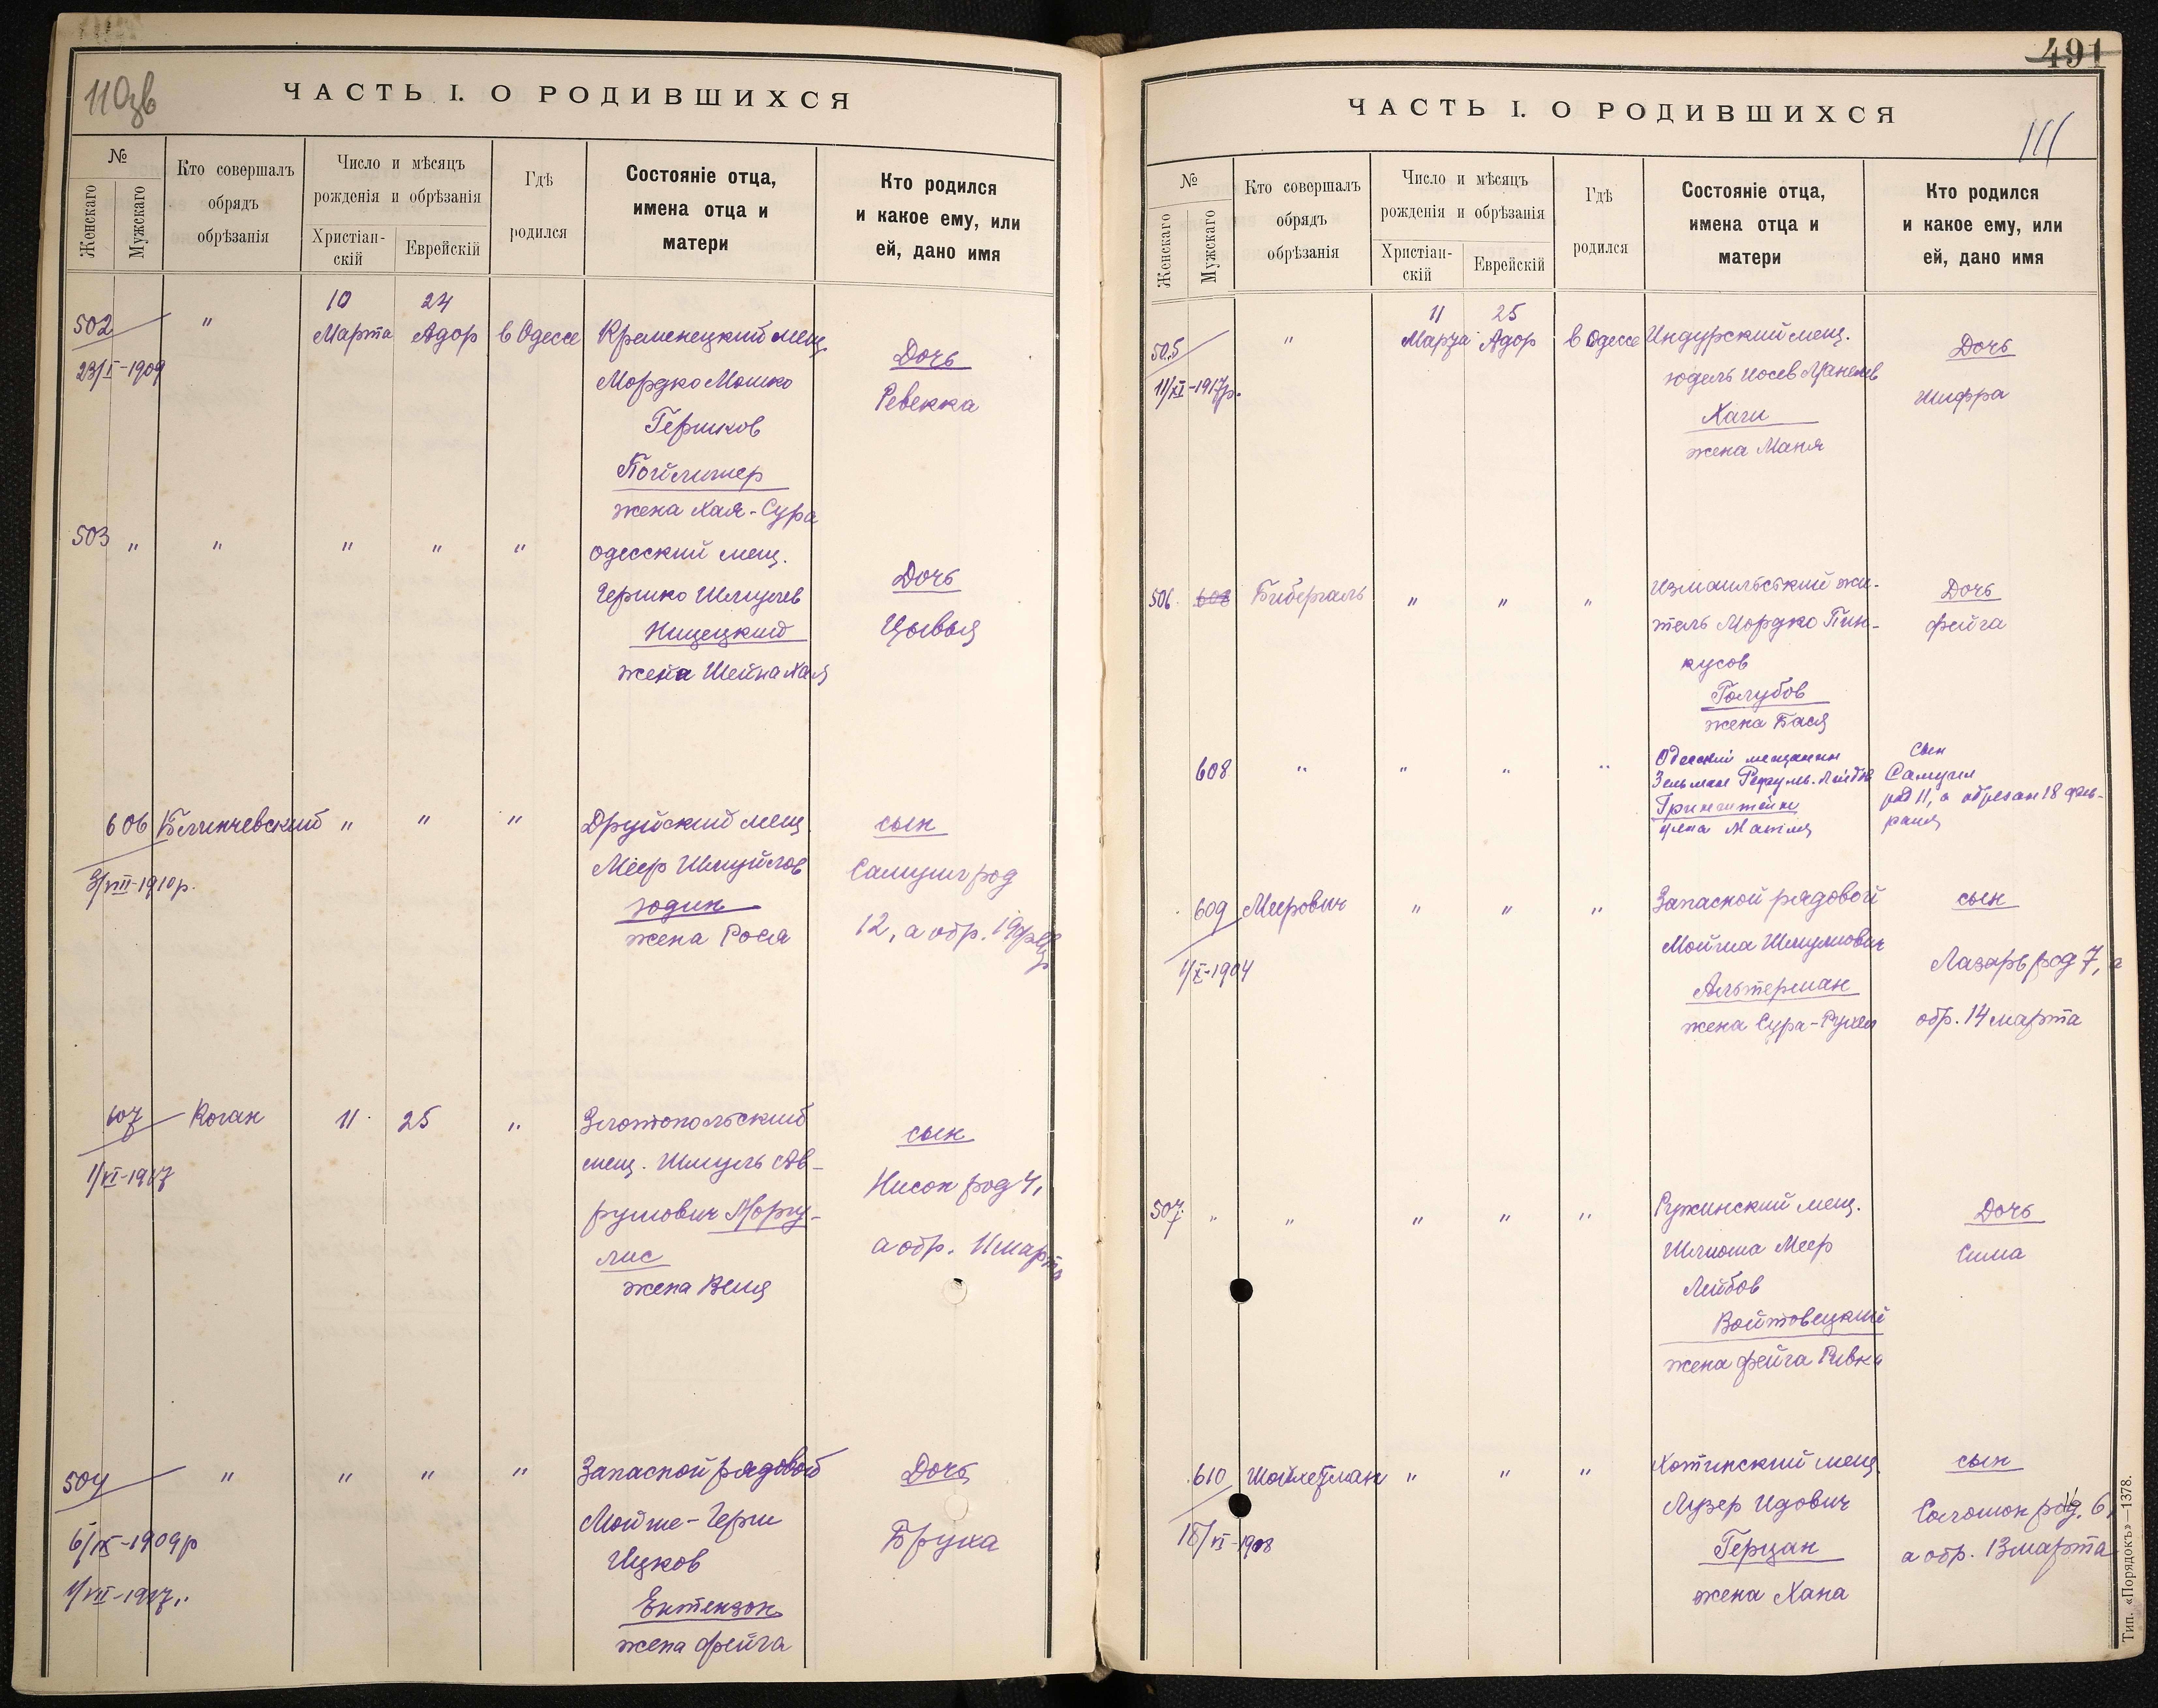 110зв
ЧАСТЬ I. О РОДИВШИХСЯ
№
Женскаго
Мужскаго
Кто совершалъ
обрядъ
обрѣзанія
Число и мѣсяцъ
рожденія и обрѣзанія
Христіан-
скій
Еврейскій
Гдѣ
родился
Состояніе отца,
имена отца и
матери
Кто родился
и какое ему, или
ей, дано имя
502 " 10 Марта 24 Адор в Одессе
23/I-1909
Кременецкий мещ.
Мордко Мошко
Гершков
Пойлишер
жена Хая-Сура
Дочь
Ревекка
503 " " " " "
одесский мещ.
Гершко Шмулев
Нищецкий
жена Шейна Хая
Дочь
Цывья
606 Блинчевский " " "
3/VIII-1910р.
Друйский мещ.
Меер Шмуйлов
Юдин
жена Рося
сын
Самуил род
12, а обр. 19
607 Коган 11 25 "
1/VI-1917
Златопольский
мещ. Шмуль Ав-
румович Моргу-
лис
жена Веля
сын
Нисон род 4,
а обр. 11 марта
504 " " " "
6/IX-1909р
1/VII-1917
Запасной рядовой
Мойше-Герш
Ицков
Ентензон
жена Фейга
Дочь
Бруха
491
111
ЧАСТЬ I. О РОДИВШИХСЯ
№
Женскаго
Мужскаго
Кто совершалъ
обрядъ
обрѣзанія
Число и мѣсяцъ
рожденія и обрѣзанія
Христіан-
скій
Еврейскій
Гдѣ
родился
Состояніе отца,
имена отца и
матери
Кто родился
и какое ему, или
ей, дано имя
505 " 11 Марта 25 Адор в Одессе
11/XI-1917р.
Индурский мещ.
Юдель Иосев
Хаги
жена Маня
Дочь
Шифра
506 608 Бибергаль " " "
Измаильський жи-
тель Мордко Пин-
кусов
Голубов
жена Бася
Дочь
Фейга
608 " " " "
Одесский мещанин
Зельман
Гринштейн
жена Матля
Сын
Самуил
род 11, а обрезан 18 фев-
раля
609 Меерович " " "
1/X-1904
Запасной рядовой
Мойша Шмулиович
Альтерман
жена Сура-Рухля
сын
Лазарь род 7, а
обр. 14 марта
507 " " " " "
Ружинский мещ.
Шлиома Меер
Лейбов
Войтовецкий
жена Фейга Ривка
Дочь
Сима
610 " " "
18/VI-1908
Хотинский мещ.
Лузер Идович
Герцан
жена Хана
сын
Соломон род. 6,
а обр. 13 марта
Тип. «Порядокъ»—1378.